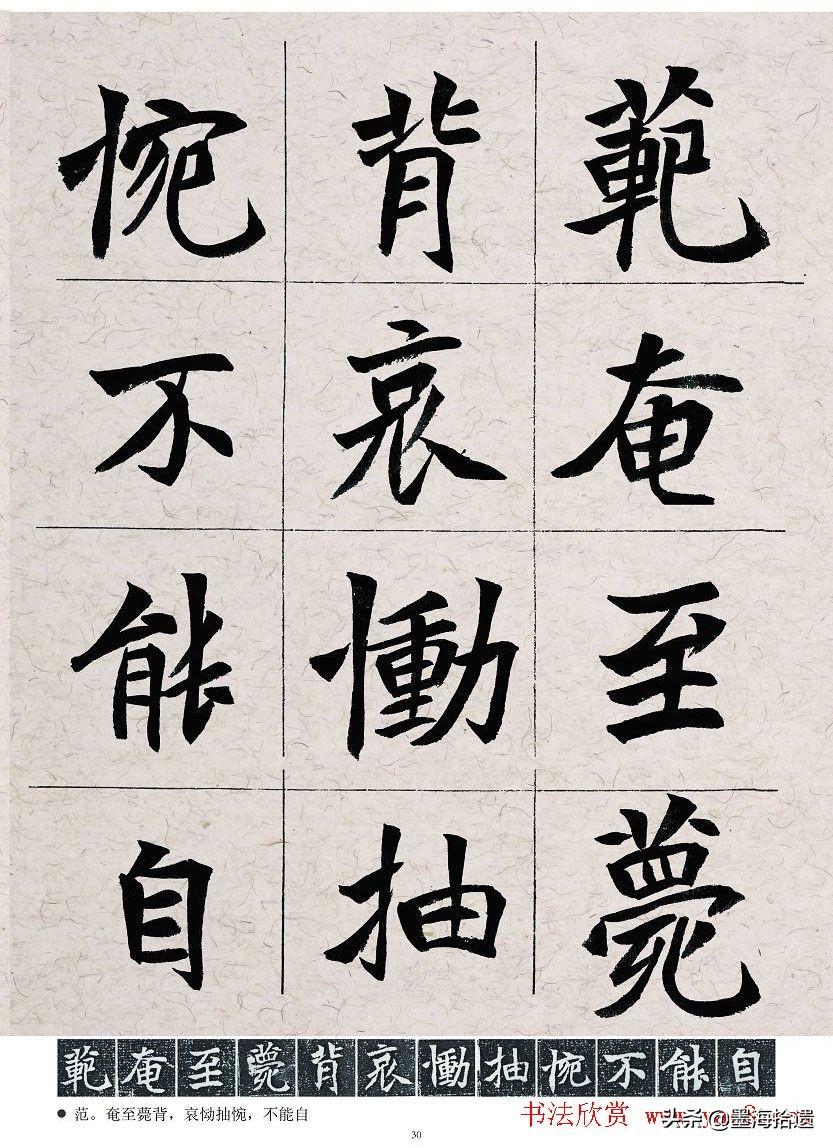 範奄至薨
背哀慟抽
惋不能自
範奄至薨背哀慟抽惋不能自
● 范。奄至薨背，哀恸抽惋，不能自
书法欣赏
头条@墨海拾遗
30